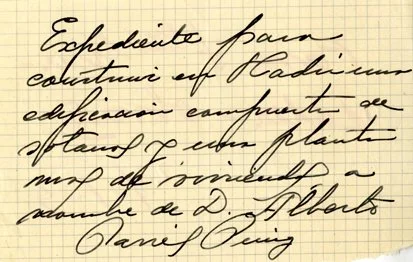 Expediente para
construir en Hadir una
edificación compuesta de
sotanos y una planta
mas de vivienda a
nombre de D. Alberto
Puig